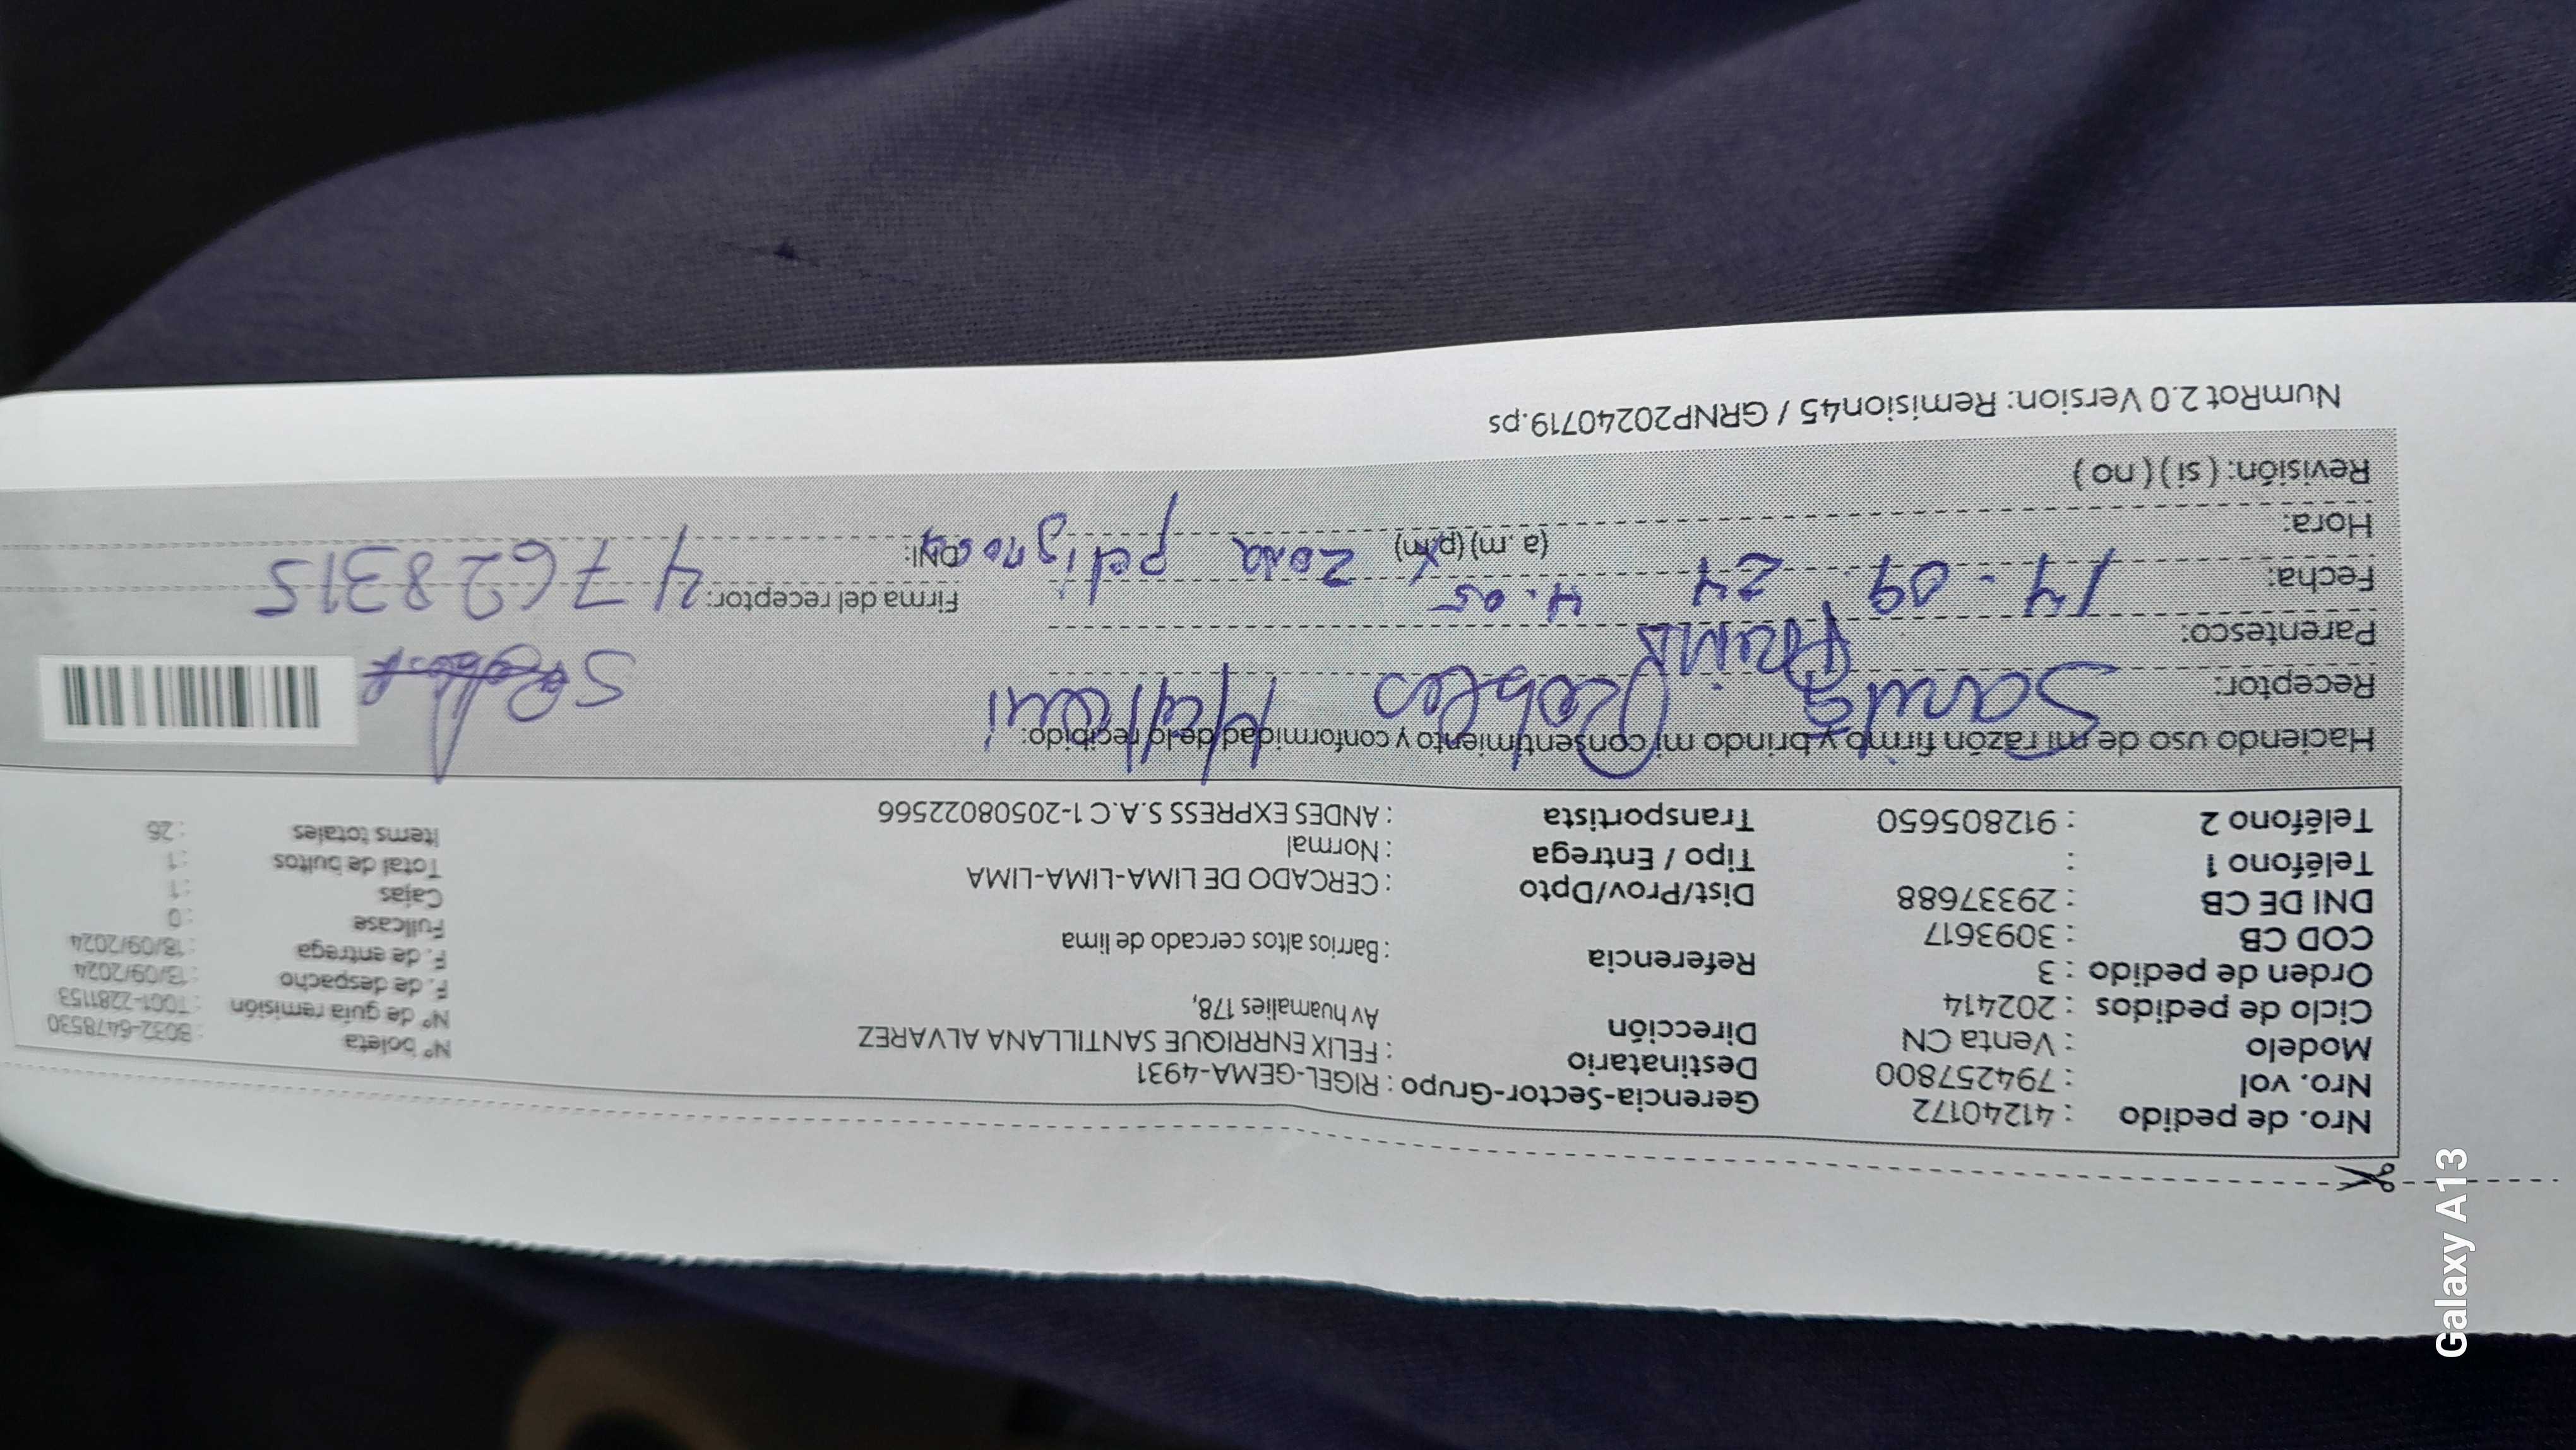 Nro. de pedido : 41240172
Nro. vol : 794257800
Modelo : Venta CN
Ciclo de pedidos : 202414
Orden de pedido : 3
COD CB : 3093617
DNI DE CB : 29337688
Teléfono 1 :
Teléfono 2 : 912805650
Gerencia-Sector-Grupo : RIGEL-GEMA-4931
Destinatario : FELIX ENRRIQUE SANTILLANA ALVAREZ
Dirección Av huamalies 178,
Referencia : Barrios altos cercado de lima
Dist/Prov/Dpto : CERCADO DE LIMA-LIMA-LIMA
Tipo / Entrega : Normal
Transportista : ANDES EXPRESS S.A.C 1-20508022566
Nº boleta : B032-6478530
Nº de guía remisión : T001-2281153
F. de despacho : 13/09/2024
F. de entrega : 18/09/2024
Fullcase : 0
Cajas : 1
Total de bultos : 1
Items totales : 26
Haciendo uso de mi razón firmo y brindo mi consentimiento y conformidad de lo recibido:
Receptor: Sandra Robles
Parentesco:
Fecha: 14.09.24
Hora: 4.05 (a. m) (p.m) zona
Firma del receptor:
DNI: 47628315
Revisión: ( si ) ( no )
NumRot 2.0 Version: Remision45 / GRNP20240719.ps
Galaxy A13